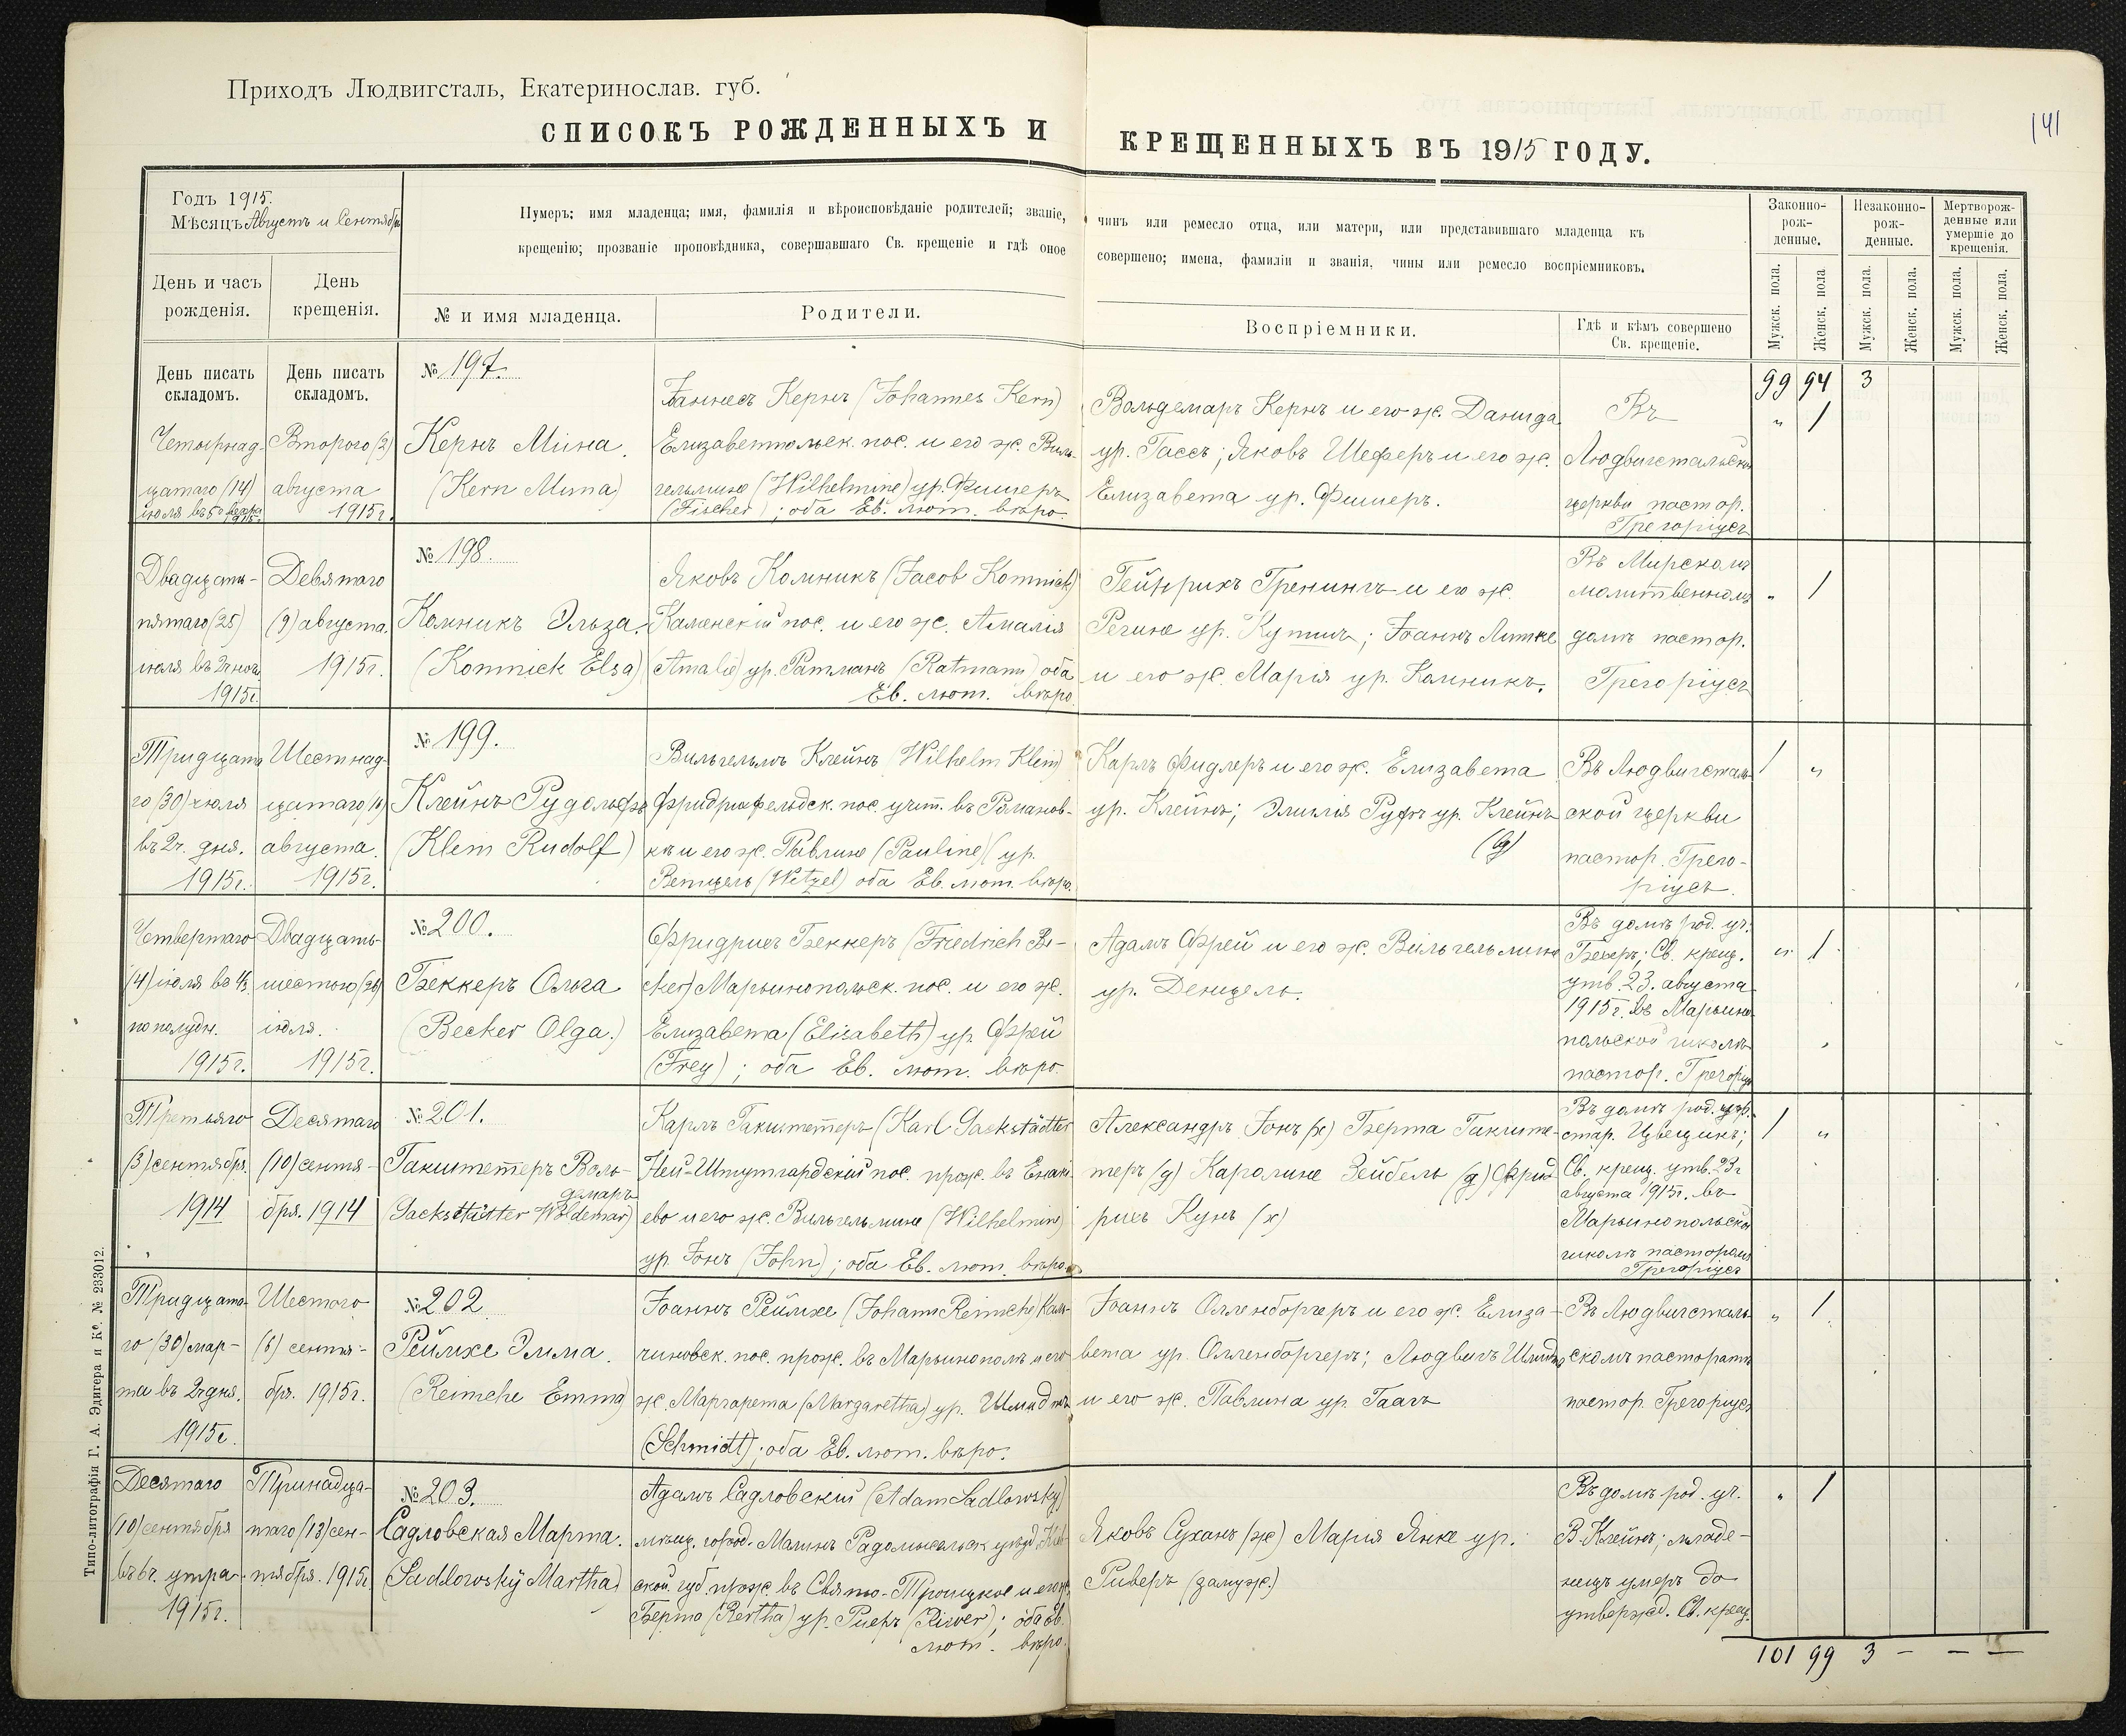 Приходъ Людвигсталь, Екатеринослав. губ.
141
СПИСОКЪ РОЖДЕННЫХЪ И КРЕЩЕННЫХЪ ВЪ 1915 ГОДУ.
Годъ 1915.
Мѣсяцъ Августъ и Сентябрь
День и часъ рожденія.
День крещенія.
Нумеръ; имя младенца; имя, фамилія и вѣроисповѣданіе родителей; званіе, чинъ или ремесло отца, или матери, или представившаго младенца къ
крещенію; прозваніе проповѣдника, совершавшаго Св. крещеніе и гдѣ оное совершено; имена, фамиліи и званія, чины или ремесло воспріемниковъ.
№ и имя младенца.
Родители.
Воспріемники.
Гдѣ и кѣмъ совершено
Св. крещеніе.
Законно-
рож-
денные.
Незаконно-
рож-
денные.
Мертворож-
денные или
умершіе до
крещенія.
Мужск. пола.
Женск. пола
Мужск. пола.
Женск. пола.
Мужск. пола.
Женск. пола.
День писать
складомъ.
День писать
складомъ.
99 94 3
Четырнад-
цатаго (14)
іюля въ 5 ч вечера
1915г.
Второго (2)
августа
1915г.
№ 197.
Кернъ Мина.
(Kern Minna)
Іоаннесъ Кернъ (Johannes Kern)
Елизаветпольск. пос. и его ж. Виль-
гельмине (Wilhelmine) ур. Фишеръ
(Fischer); оба Ев. лют. вѣро.
Вольдемаръ Кернъ и его ж. Данида
ур. Гассъ; Яковъ Шеферъ и его ж.
Елизавета ур. Фишеръ.
Въ
Людвигстальской
церкви пастор.
Грегоріусъ
" 1
Двадцать-
пятаго (25)
іюля въ 2ч ночи
1915г.
Девятаго
(9) августа.
1915г.
№ 198.
Комникъ Эльза.
(Komnick Elsa)
Яковъ Комникъ (Jacob Komnick)
Каменскій пос. и его ж. Амалія
(Amalie) ур. Ратманъ (Ratmann) оба
Ев. лют. вѣро.
Гейнрихъ Гренингъ и его ж.
Регине ур. Кутшъ; Іоаннъ Литке
и его ж. Марія ур. Комникъ.
Въ Мирскомъ
молитвенномъ
домѣ пастор.
Грегоріусъ
" 1
Тридцата
го (30) іюля
въ 2ч. дня.
1915г.
Шестнад-
цатаго (16)
августа.
1915г.
№ 199.
Клейнъ Рудольфъ
(Klein Rudolf)
Вильгельмъ Клейнъ (Wilhelm Klein)
Фридрихфельдск. пос. учит. въ Романов-
кѣ и его ж. Павлине (Pauline) (ур.
Ветцель (Wetzel) оба Ев. лют. вѣро.
Карлъ Фидлеръ и его ж. Елизавета
ур. Клейнъ; Эмилія Руфъ ур. Клейнъ
Въ Людвигсталь-
ской церкви
пастор. Грего-
ріусъ.
1 "
Четвертаго
(4) іюля въ
пополудн.
1915г.
Двадцать-
шестого (26)
іюля.
1915г.
№ 200.
Беккеръ Ольга
(Becker Olga.)
Фридрихъ Беккеръ (Friedrich Be-
cker) Марьинопольск. пос. и его ж.
Елизавета (Elisabeth) ур. Фрей
(Frey); оба Ев. лют. вѣро
Адамъ Фрей и его ж. Вильгельмине
ур. Денцель.
Въ домѣ род. уч.
Св. крещ.
утв. 23. августа
1915г. въ Марьино
польской школѣ
пастор. Грегоріусъ
" 1
Третьяго
(3) сентября.
1914
Десятаго
(10) сентя-
бря. 1914
№ 201.
Гакштетеръ Воль-
демаръ
(Sackstätter Woldemar)
Карлъ Гакштетеръ (Karl Sackstädter
Ней-Штутгардскій пос. прож. въ Енакі-
ево и его ж. Вильгельмине (Wilhelmine)
ур. Іонъ (John); оба Ев. лют. вѣро
Александръ Іонъ (х) Берта Гакште-
теръ (д) Каролине Зейбель (д) Фрид-
рихъ Кунъ (х)
Въ домѣ род.
Цвецихъ;
Св. крещ. утв. 23г
августа 1915г. въ
Марьинопольской
школѣ пасторомъ
Грегоріусъ
1 "
Тридцата-
го (30) мар-
та въ 2ч дня.
1915г.
Шестого
(6) сентя-
бря. 1915г.
№ 202
Реймхе Эмма.
(Reimche Emma)
Іоаннъ Реймхе (Johann Reimche) Каль-
чиновск. пос. прож. въ Марьинополѣ и его
ж. Маргарета (Margaretha) ур. Шмидтъ
(Schmidt); оба Ев. лют. вѣро.
Іоаннъ Олленборгеръ и его ж. Елиза-
вета ур. Олленборгеръ; Людвигъ Шмидтъ
и его ж. Павлина ур. Гаагъ
Въ Людвигсталь-
скомъ пасторатѣ
пастор. Грегоріусъ
" 1
Десятаго
(10) сентября
въ 6ч. утра
1915г.
Тринадца-
таго (13) сен-
тября. 1915г
№ 203.
Садловская Марта.
(Sadlowsky Martha)
Адамъ Садловскій (Adam Sadlowsky)
мѣщ. город. Малинъ Радомысльск. уѣзд. Кіев-
ской губ. прож. въ Свято-Троицкое и его ж.
Берта (Bertha) ур. Риверъ (Riwer); оба Ев.
лют. вѣро.
Яковъ Суханъ (ж) Марія Янке ур.
Риверъ (замуж.)
Въ домѣ род. уч.
В. Клейнъ; младе-
нецъ умеръ до
утвержд. Св. крещ.
" 1
101 99 3 - - -
Типо-литографія Г. А. Эдигера и Кº. № 233012.